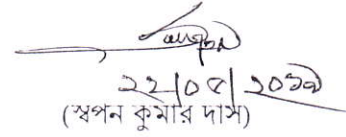 ২২/০৫/২০১৯
(স্বপন কুমার দাস)